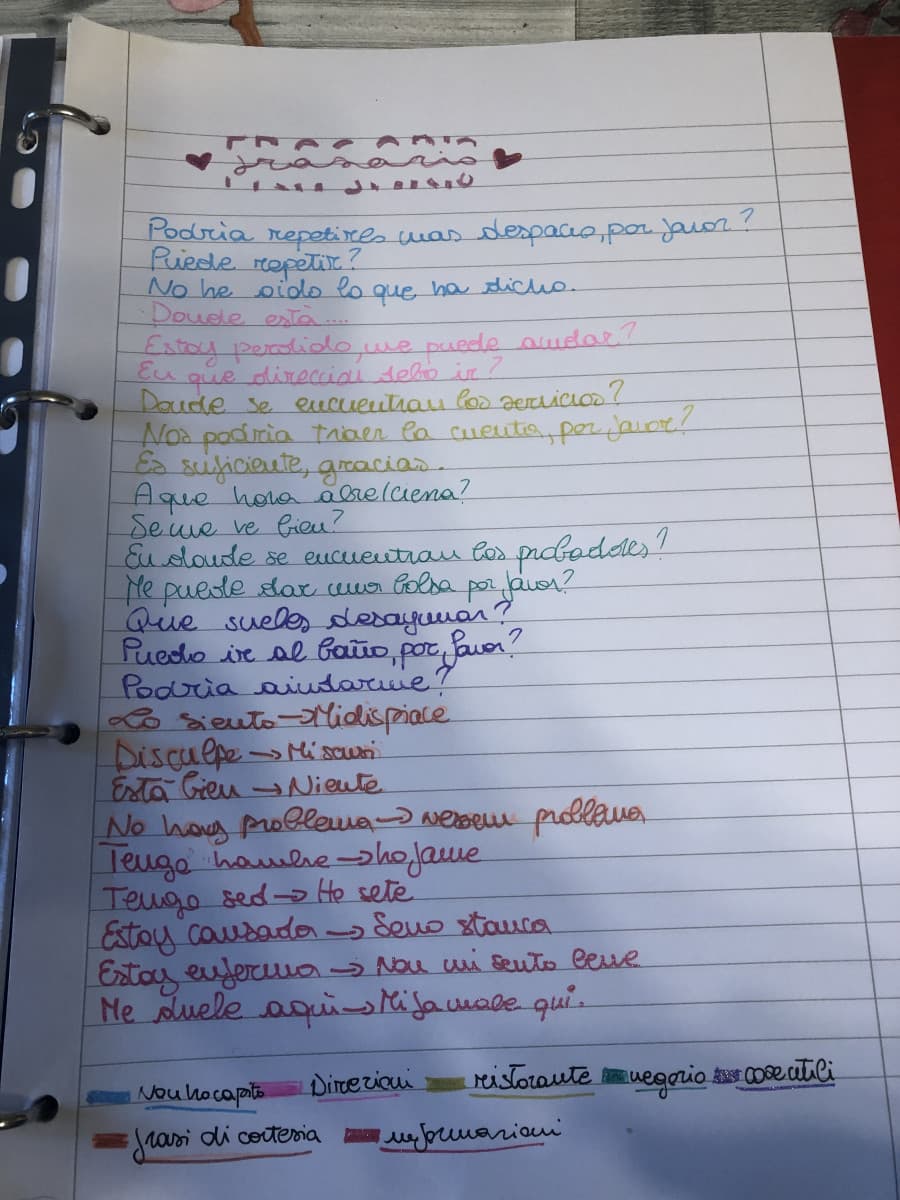 frasario
Podria repetires mas despacio, por favor?
Puede repetir?
No he oido lo que ha dicho.
Donde està....
Estoy perdido, me puede aiudar?
En que direccion debo ir?
Donde se encuentran los servicios?
Nos podria traer la cuenta, por favor?
Es suficiente, gracias.
A que hora abre/ciena?
Se me ve bien?
En donde se encuentran los probadores?
Me puede dar una bolsa por favor?
Que sueles desayunar?
Puedo ir al baño, por favor?
Podria aiudarme?
Lo siento → Mi dispiace
Disculpe → Mi scusi
Està bien → Niente
No hay problema → nessun problema
Tengo hambre → ho fame
Tengo sed → Ho sete
Estoy cansada → Sono stanca
Estoy enferma → Non mi sento bene
Me duele aqui → Mi fa male qui.
Non ho capito Direzioni ristorante negozio cose utili
frasi di cortesia informazioni